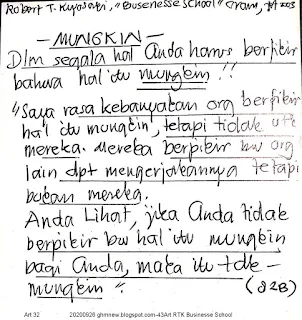 Robert T. Kiyosaki, "Busenesse School"
— MUNGKIN —
Dlm segala hal Anda harus berpikir
bahwa hal itu mungkin!!
"Saya rasa kebanyakan org berpikir
hal itu mungkin, tetapi tidak utk
mereka. Mereka berpikir bw org
lain dpt mengerjakannya tetapi
bukan mereka.
Anda Lihat, jika Anda tidak
berpikir bw hal itu mungkin
bagi Anda, maka itu tdk
mungkin". (82B)
Art 32 20200926 ghmnew.blogspot.com-43Art RTK Businesse School